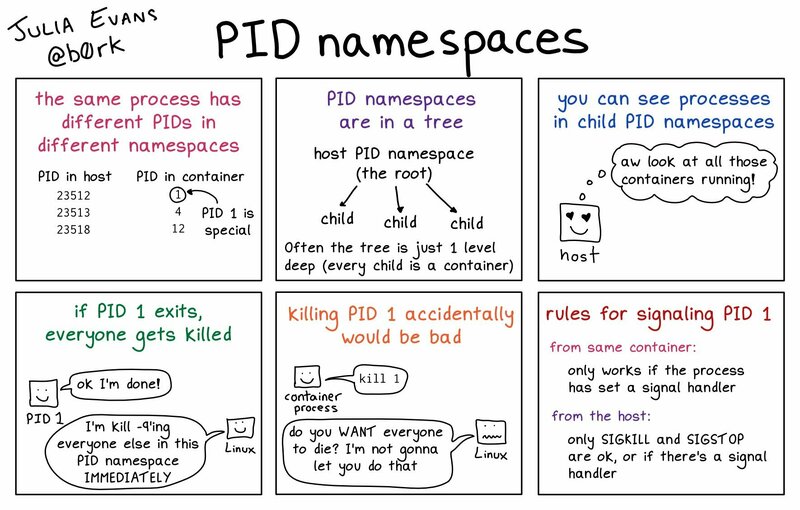 JULIA EVANS
@b0rk
PID namespaces
the same process has
different PIDs in
different namespaces
PID in host PID in container
23512 1
23513 4 PID 1 is
23518 12 special
PID namespaces
are in a tree
host PID namespace
(the root)
child child child
Often the tree is just 1 level
deep (every child is a container)
you can see processes
in child PID namespaces
aw look at all those
containers running!
host
if PID 1 exits,
everyone gets killed
ok I'm done!
PID 1
I'm kill -9'ing
everyone else in this
PID namespace
IMMEDIATELY
Linux
killing PID 1 accidentally
would be bad
kill 1
container
process
do you WANT everyone
to die? I'm not gonna
let you do that
Linux
rules for signaling PID 1
from same container:
only works if the process
has set a signal handler
from the host:
only SIGKILL and SIGSTOP
are ok, or if there's a signal
handler